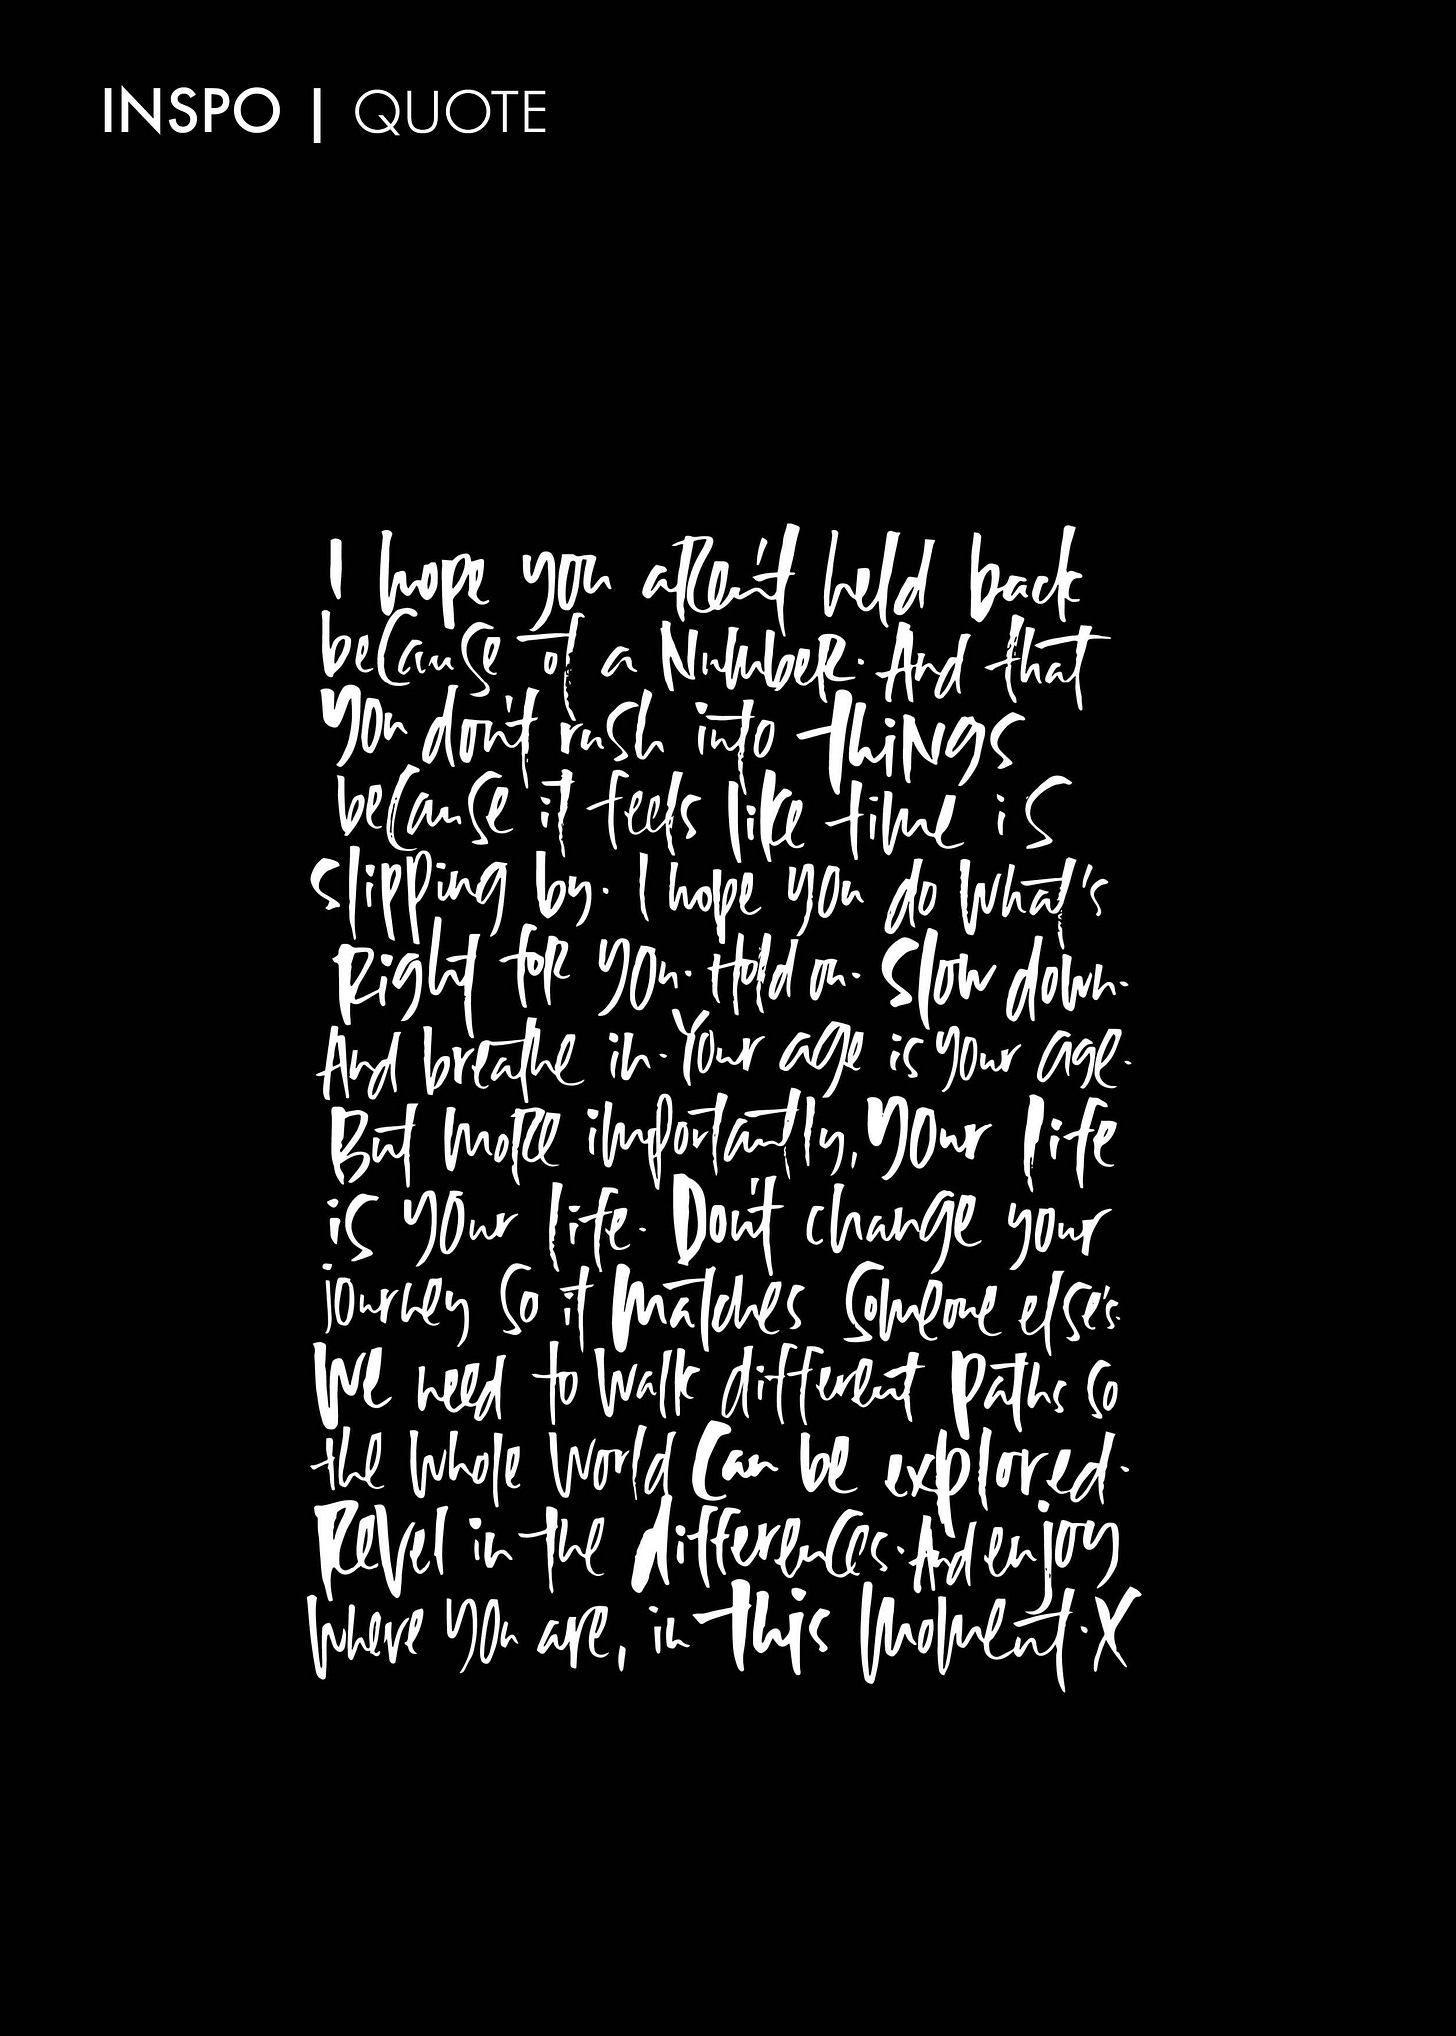 INSPO | QUOTE
I hope you aren't held back
because of a Number. And that
you don't rush into things
because it feels like time is
slipping by. I hope you do what's
Right for you. Hold on. Slow down.
And breathe in. Your age is your age.
But more importantly, your life
is your life. Don't change your
journey so it matches someone else's.
We need to walk different paths so
the whole world can be explored.
Revel in the differences. And enjoy
where you are, in this moment. X